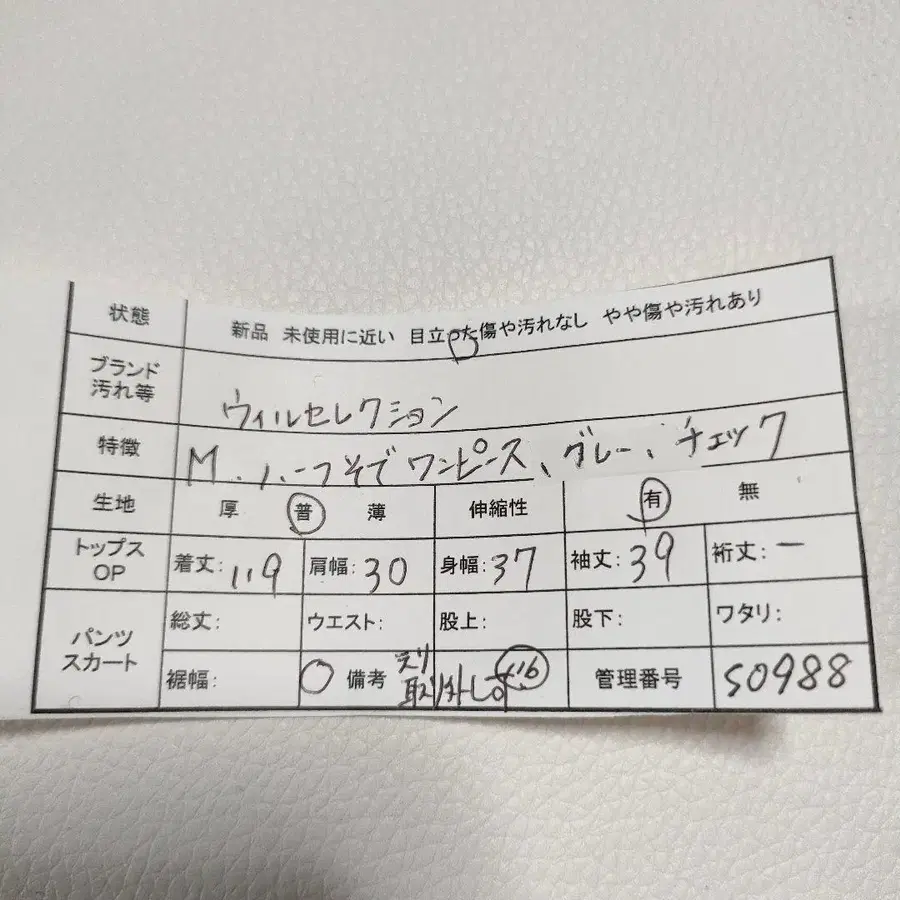 状態 新品 未使用に近い 目立った傷や汚れなし やや傷や汚れあり
ブランド 汚れ等 ウィルセレクション
特徴 M、ハーフそでワンピース、グレー、チェック
生地 厚 普 薄 伸縮性 有 無
トップス OP 着丈:119 肩幅:30 身幅:37 袖丈:39 裄丈:ー
パンツ スカート 総丈: ウエスト: 股上: 股下: ワタリ:
裾幅: 備考 えり取り外し 管理番号 S0988